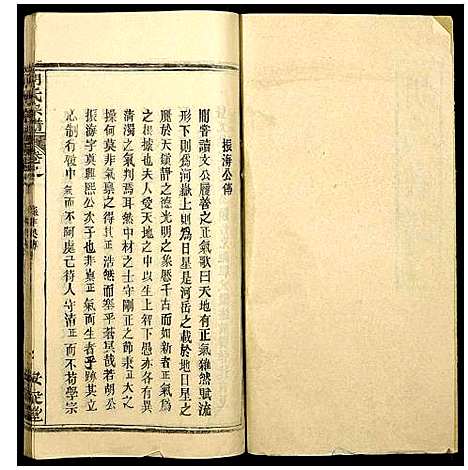 振海公傳
間嘗讀文公履善之正氣歌曰天地有正氣雜然賦流
形下則爲河嶽上則爲日星是河岳之載於地日星之
麗於天鎮靜之德光明之象歷千古而如新者正氣爲
之也夫人受天地之中以生上智下愚亦各有異
清濁之氣判焉耳然中材之士守剛正之節秉正大之
操何莫非氣稟之得其正浩然而塞乎蒼冥若胡公
振海字 熙公次子也非稟正氣而生者乎跡其立
心制行 中正不阿處己待人守清正而不苟學宗
胡氏宗譜 卷之
安定堂